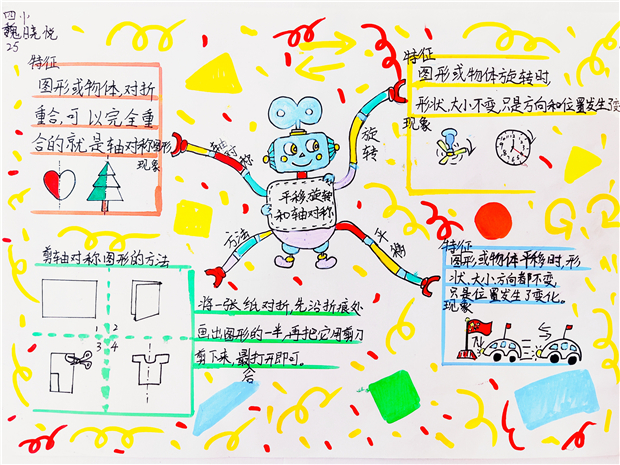 四小
魏晓悦
25
特征
图形或物体,对折
重合,可以完全重
合的就是轴对称图形
现象
轴对称
旋转
特征
图形或物体旋转时
形状、大小不变,只是方向和位置发生了变
现象
平移、旋转
和轴对称
方法
平移
剪轴对称图形的方法
1 2
3 4
将一张纸对折,先沿折痕处
画出图形的一半,再把它用剪刀
剪下来,最打开即可。
后
特征
图形或物体平移时,形
状、大小方向都不变
只是位置发生了变化。
现象